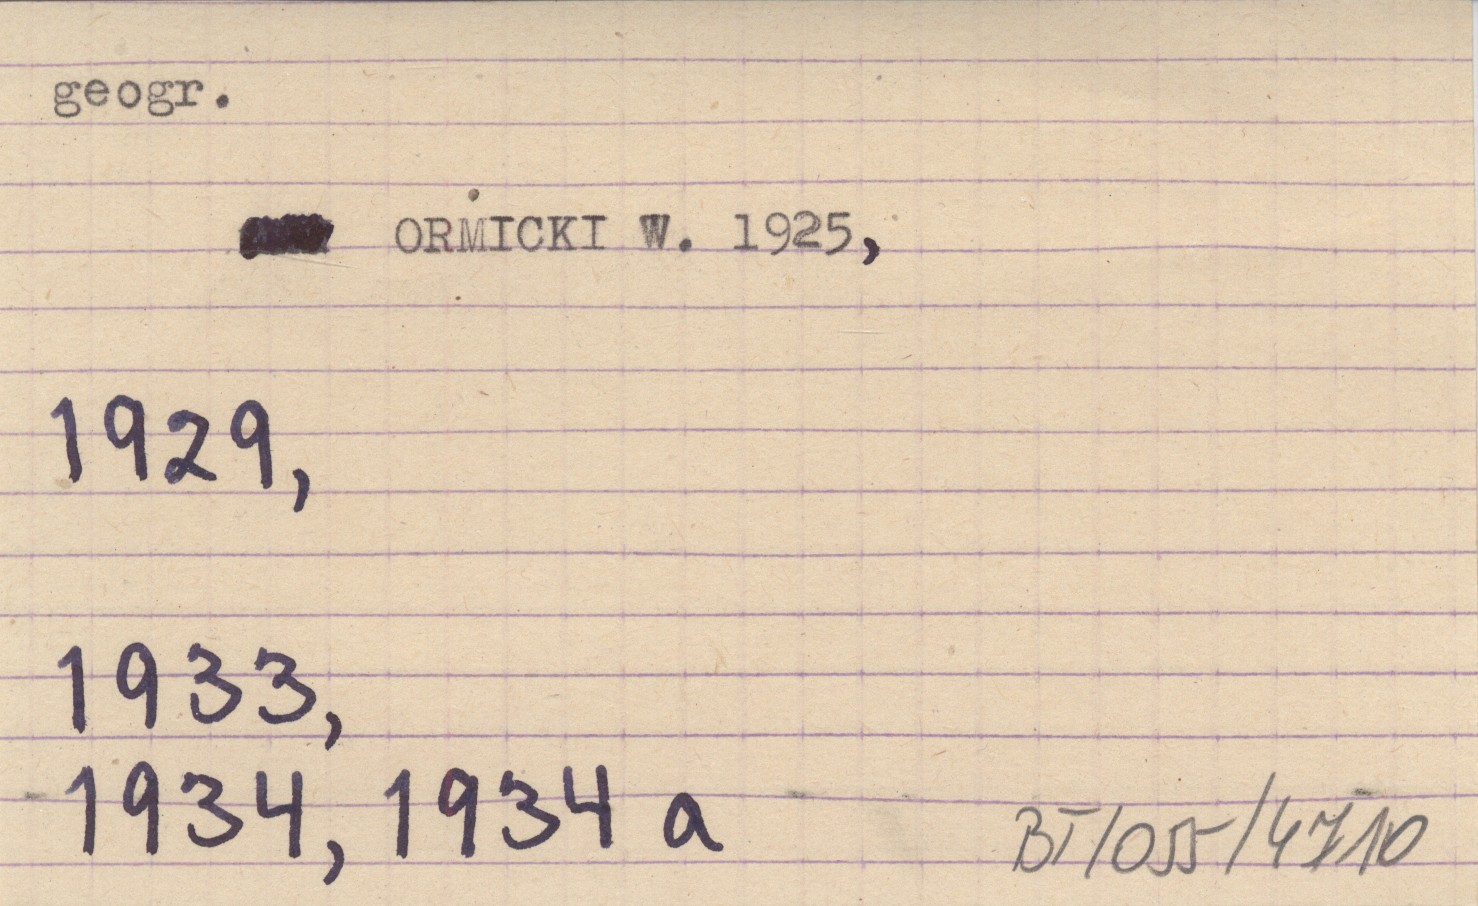 geogr.
ORMICKI W. 1925,
1929,
1933,
1934, 1934 a
BT/055/4710